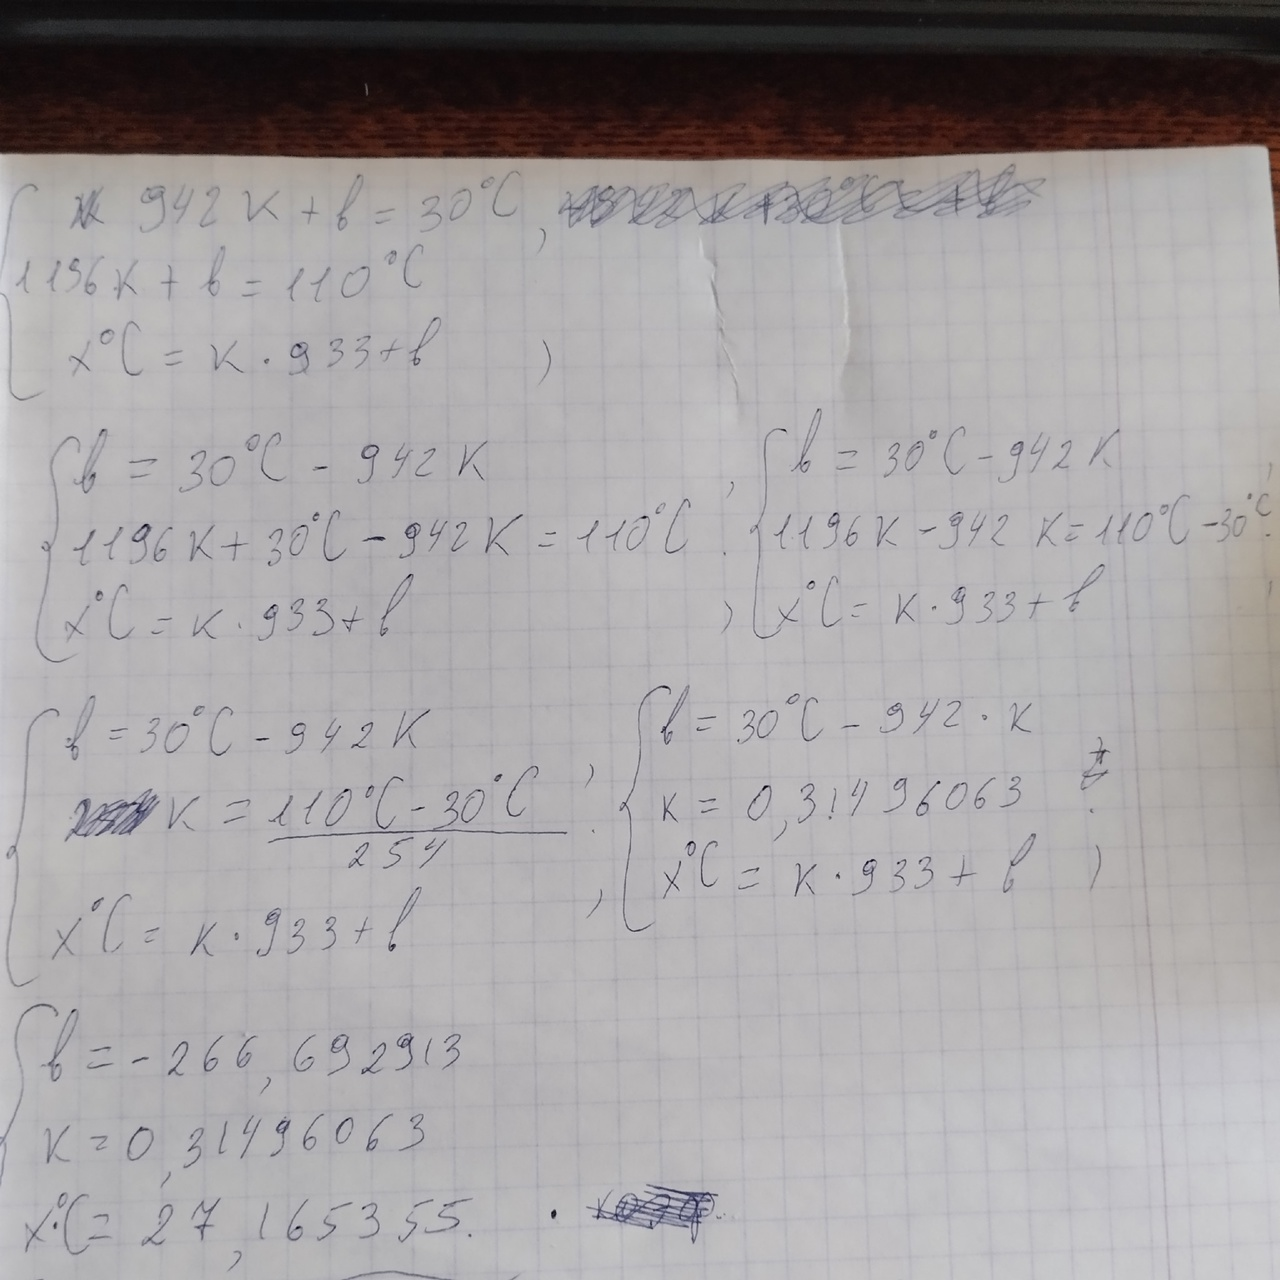 942 к + в = 30°C,
1196к + в = 110°C
x°C = к · 933 + в )
в = 30°C - 942 к ,
1196 к + 30°C - 942 к = 110°C .
x°C = к · 933 + в ,
в = 30°C - 942 к ,
1196 к - 942 к = 110°C - 30°C .
x°C = к · 933 + в ,
в = 30°C - 942 к ,
к = 110°C - 30°C / 254 .
x°C = к · 933 + в ,
в = 30°C - 942 · к
к = 0,31496063 .
x°C = к · 933 + в )
в = -266,692913
к = 0,31496063
x°C = 27,165355.